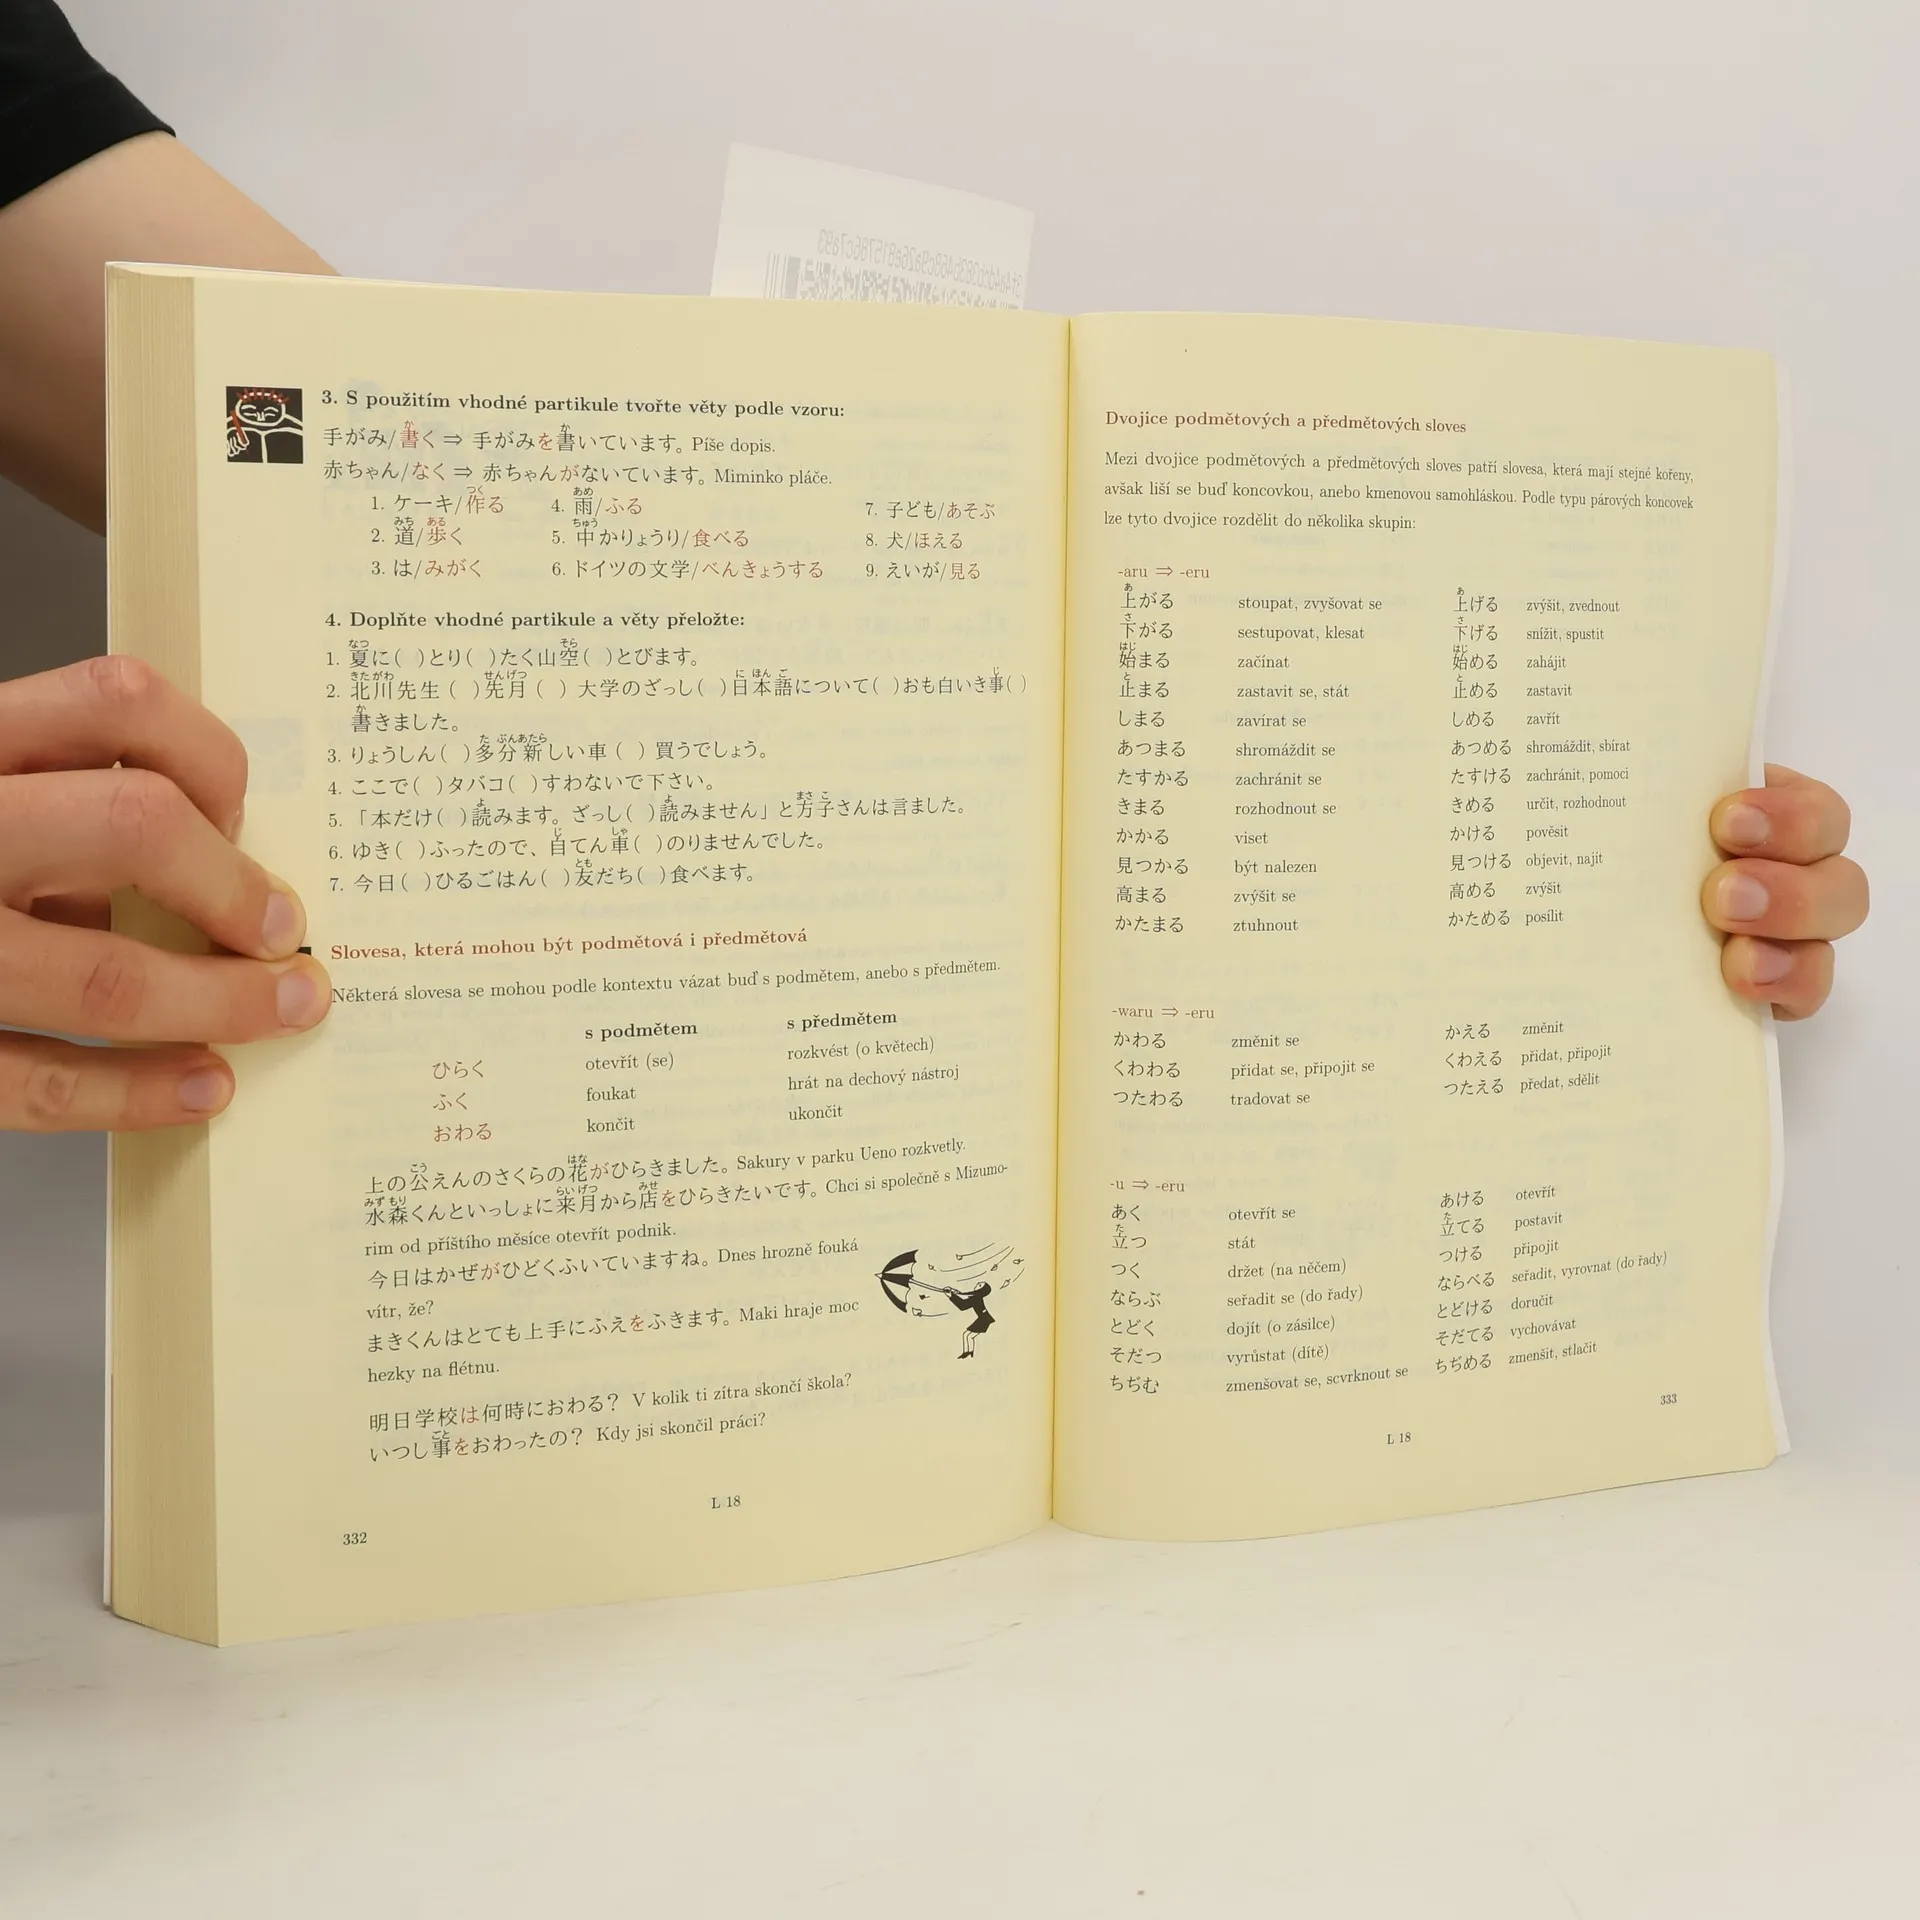 3. S použitím vhodné partikule tvořte věty podle vzoru:
手がみ/書く ⇒ 手がみを書いています。Píše dopis.
赤ちゃん/なく ⇒ 赤ちゃんがないています。Miminko pláče.
1. ケーキ/作る 4. 雨/ふる 7. 子ども/あそぶ
2. 道/歩く 5. 中かりょうり/食べる 8. 犬/ほえる
3. は/みがく 6. ドイツの文学/べんきょうする 9. えいが/見る
4. Doplňte vhodné partikule a věty přeložte:
1. 夏に( )とり( )たく山空( )とびます。
2. 北川先生( )先月( )大学のざっし( )日本語について( )おも白いき事( )
書きました。
3. りょうしん( )多分新しい車( )買うでしょう。
4. ここで( )タバコ( )すわないで下さい。
5. 「本だけ( )読みます。ざっし( )読みません」と方子さんは言ました。
6. ゆき( )ふったので、自てん車( )のりませんでした。
7. 今日( )ひるごはん( )友だち( )食べます。
Slovesa, která mohou být podmětová i předmětová
Některá slovesa se mohou podle kontextu vázat buď s podmětem, anebo s předmětem.
s podmětem s předmětem
ひらく otevřít (se) rozkvést (o květech)
ふく foukat hrát na dechový nástroj
おわる končit ukončit
上の公えんのさくらの花がひらきました。Sakury v parku Ueno rozkvetly.
水森くんといっしょに来月から店をひらきたいです。Chci si společně s Mizumo-
rim od příštího měsíce otevřít podnik.
今日はかぜがひどくふいていますね。Dnes hrozně fouká
vítr, že?
まきくんはとても上手にふえをふきます。Maki hraje moc
hezky na flétnu.
明日学校は何時におわる? V kolik ti zítra skončí škola?
いつし事をおわったの? Kdy jsi skončil práci?
L 18
332
Dvojice podmětových a předmětových sloves
Mezi dvojice podmětových a předmětových sloves patří slovesa, která mají stejné kořeny,
avšak liší se buď koncovkou, anebo kmenovou samohláskou. Podle typu párových koncovek
lze tyto dvojice rozdělit do několika skupin:
-aru ⇒ -eru
上がる stoupat, zvyšovat se 上げる zvýšit, zvednout
下がる sestupovat, klesat 下げる snížit, spustit
始まる začínat 始める zahájit
止まる zastavit se, stát 止める zastavit
しまる zavírat se しめる zavřít
あつまる shromáždit se あつめる shromáždit, sbírat
たすかる zachránit se たすける zachránit, pomoci
きまる rozhodnout se きめる určit, rozhodnout
かかる viset かける pověsit
見つかる být nalezen 見つける objevit, najít
高まる zvýšit se 高める zvýšit
かたまる ztuhnout かためる posílit
-waru ⇒ -eru
かわる změnit se かえる změnit
くわわる přidat se, připojit se くわえる přidat, připojit
つたわる tradovat se つたえる předat, sdělit
-u ⇒ -eru
あく otevřít se あける otevřít
立つ stát 立てる postavit
つく držet (na něčem) つける připojit
ならぶ seřadit se (do řady) ならべる seřadit, vyrovnat (do řady)
とどく dojít (o zásilce) とどける doručit
そだつ vyrůstat (dítě) そだてる vychovávat
ちぢむ zmenšovat se, scvrknout se ちぢめる zmenšit, stlačit
333
L 18